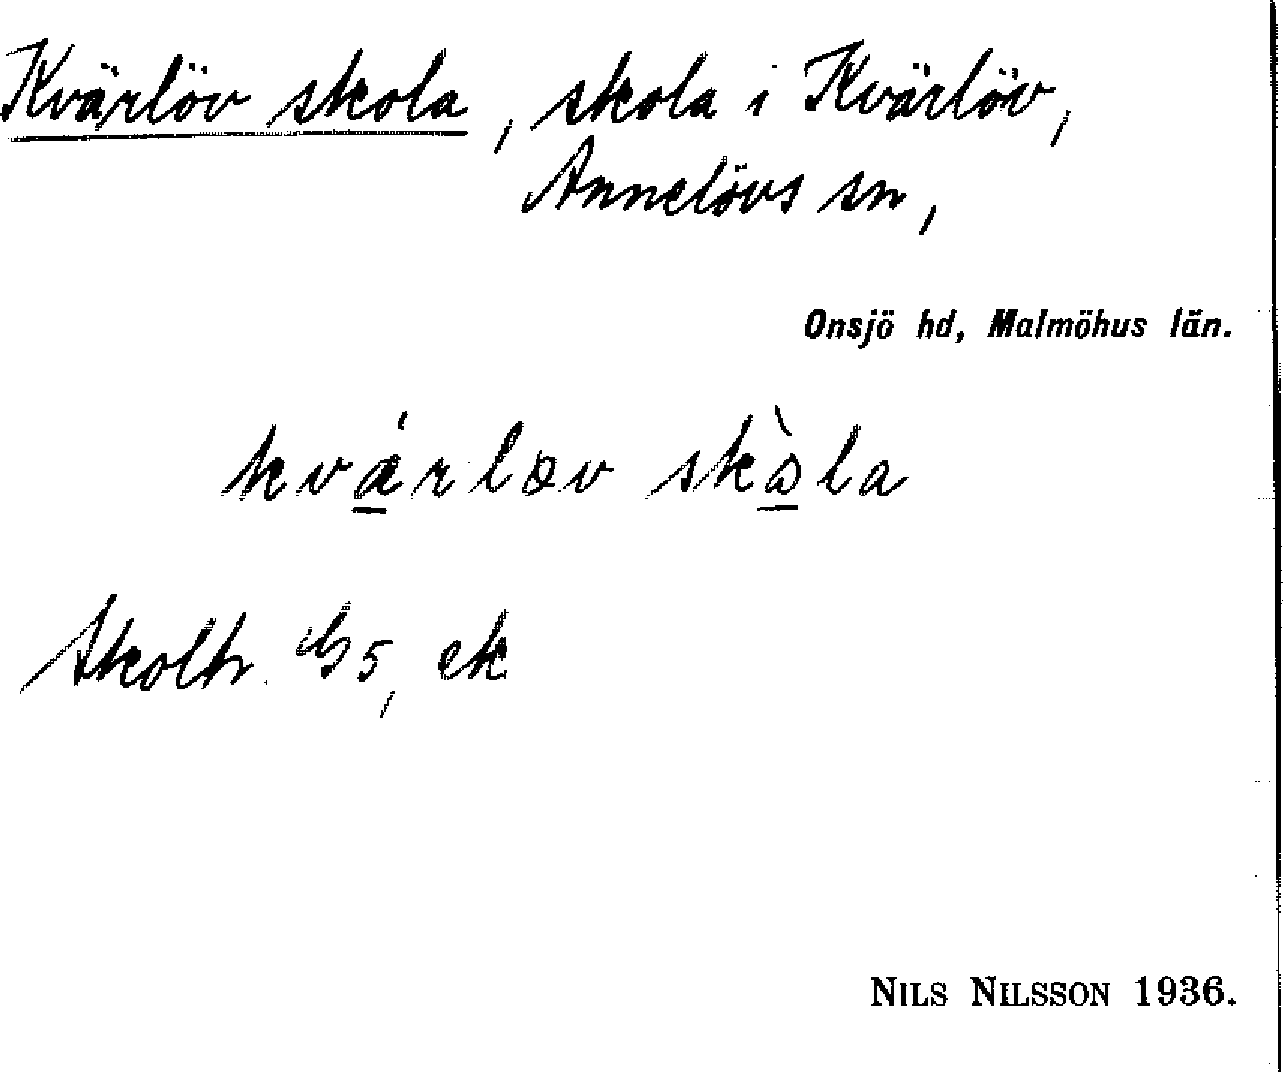 Kvärlöv skola, skola i Kvärlöv,
Annelövs sn,
Onsjö hd, Malmöhus län.
kvǽrlœv skòla
Skolh. 5, ek
NILS NILSSON 1936.